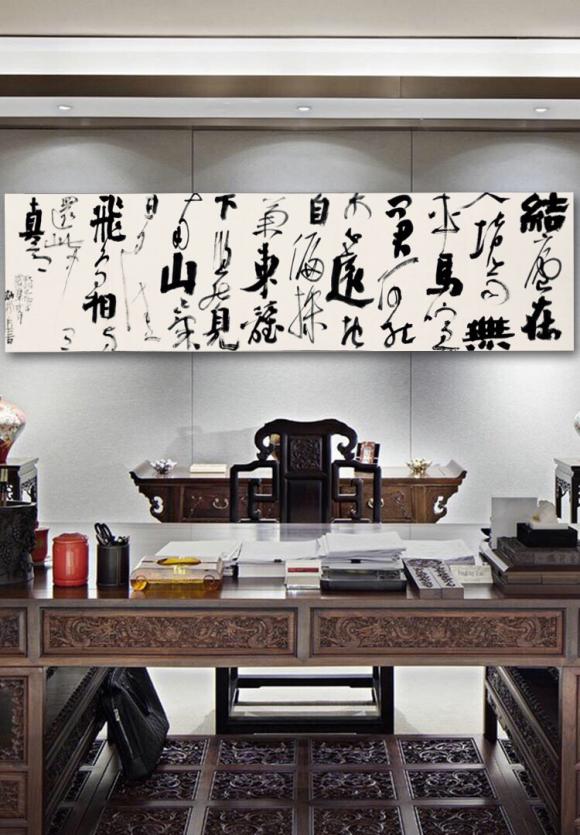 結廬在
人境而無
車馬喧
問君何能
尔心遠地
自偏採
菊東籬
下悠然見
南山氣
日夕佳
飛鳥相與
還此中有
真意